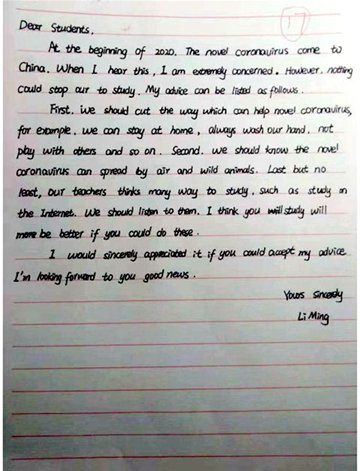 17
Dear Students.
At the beginning of 2020. The novel coronavirus come to
China. When I hear this, I am extremely concerned. However. nothing
could stop our to study. My advice can be listed as follows.
First. we should cut the way which can help novel coronavirus,
for example. we can stay at home, always wash our hand. not
play with others and so on. Second. we should know the novel
coronavirus can spread by air and wild animals. Last but no
least, our teachers thinks many way to study. such as study in
the Internet. We should listen to them. I think you study will
be better if you could do these.
I would sincerely appreciated it if you could accept my advice
I'm looking forward to you good news.
Yours sincerely
Li Ming